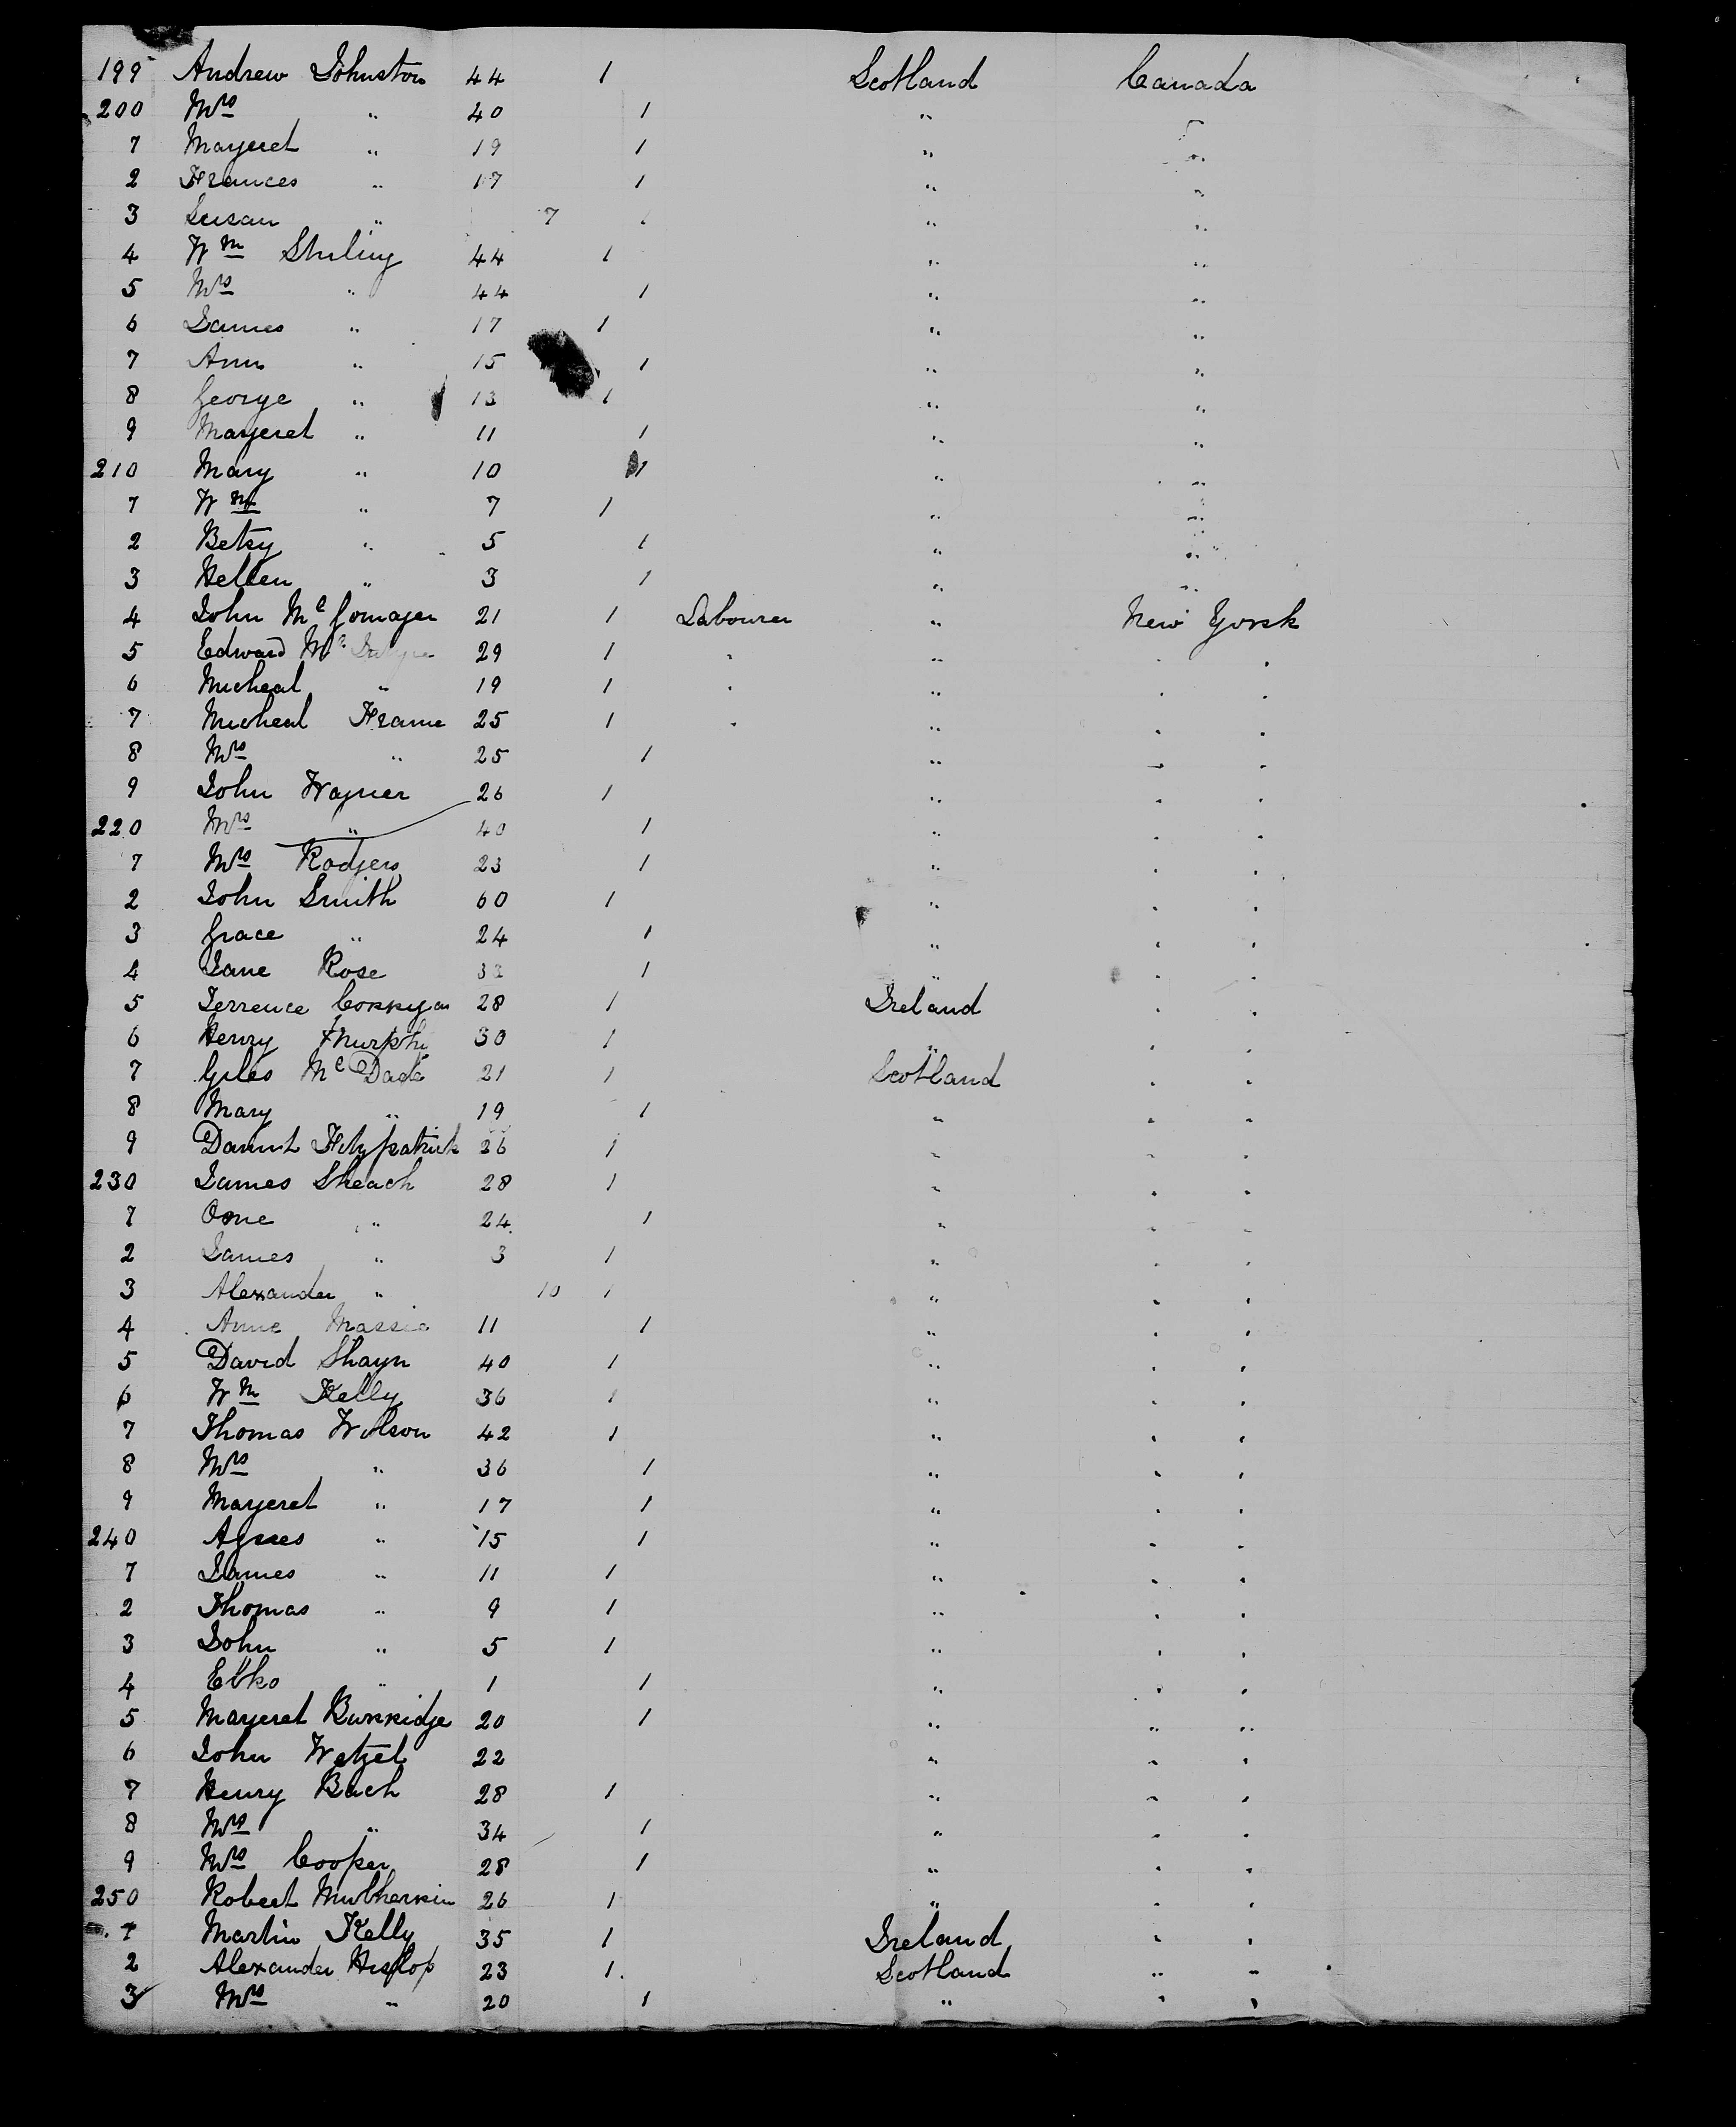 199 Andrew Johnston 44 1 Scotland Canada
200 Mrs " 40 1 " "
1 Margeret " 19 1 " "
2 Frances " 17 1 " "
3 Susan " 7 1 " "
4 Wm Stirling 44 1 " "
5 Mrs " 44 1 " "
6 James " 17 1 " "
7 Ann " 15 1 " "
8 George " 13 1 " "
9 Margeret " 11 1 " "
210 Mary " 10 1 " "
1 Wm " 7 1 " "
2 Betsy " 5 1 " "
3 Hellen " 3 1 " "
4 John Mc 21 1 Labourer " New York
5 Edward Mc 29 1 " " " "
6 Micheal " 19 1 " " " "
7 Micheal Frame 25 1 " " " "
8 Mrs " 25 1 " " "
9 John Wagner 26 1 " " "
220 Mrs " 40 1 " " "
1 Mrs Rodgers 23 1 " " "
2 John Smith 60 1 " " "
3 Grace " 24 1 " " "
4 Jane Rose 33 1 " " "
5 Terrence Corrygan 28 1 Ireland " "
6 Henry Murphy 30 1 " " "
7 Giles McDade 21 1 Scotland " "
8 Mary " 19 1 " " "
9 Fitzpatrick 26 1 " " "
230 James Sheach 28 1 " " "
1 " 24 1 " " "
2 James " 3 1 " " "
3 Alexander " 10 1 " " "
4 Anne Massie 11 1 " " "
5 David Shayn 40 1 " " "
6 Wm Kelly 36 1 " " "
7 Thomas Wilson 42 1 " " "
8 Mrs " 36 1 " " "
9 Margeret " 17 1 " " "
240 Agnes " 15 1 " " "
1 James " 11 1 " " "
2 Thomas " 9 1 " " "
3 John " 5 1 " " "
4 " 1 1 " " "
5 Margeret Burridge 20 1 " " "
6 John Wetzel 22 " " "
7 Henry Bach 28 1 " " "
8 Mrs " 34 1 " " "
9 Mrs Cooper 28 1 " " "
250 Robert Mulherrin 26 1 " " "
1 Martin Kelly 35 1 Ireland " "
2 Alexander Hislop 23 1 Scotland " "
3 Mrs " 20 1 " " "